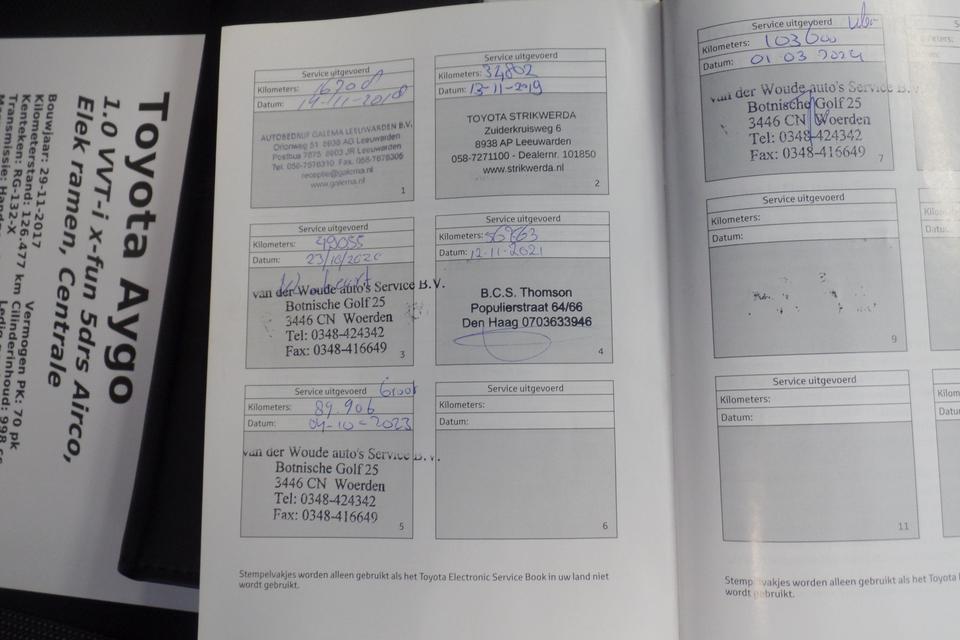 Toyota Aygo
1.0 VVT-i x-fun 5drs Airco,
Elek ramen, Centrale
Bouwjaar: 29-11-2017
Vermogen PK: 70 pk
Kilometerstand: 126.477 km
Cilinderinhoud: 998 cc
Kenteken: RG-132-X
Service uitgevoerd
Kilometers: 16708
Datum: 14-11-2018
AUTOBEDRIJF GALEMA LEEUWARDEN B.V.
Orionweg 51 8938 AG Leeuwarden
Postbus 7875 8903 JR Leeuwarden
receptie@galema.nl
www.galema.nl
1
Service uitgevoerd
Kilometers: 34802
Datum: 13-11-2019
TOYOTA STRIKWERDA
Zuiderkruisweg 6
8938 AP Leeuwarden
058-7271100 - Dealernr. 101850
www.strikwerda.nl
2
Service uitgevoerd
Kilometers: 49055
Datum: 23/10/2020
van der Woude auto's Service B.V.
Botnische Golf 25
3446 CN Woerden
Tel: 0348-424342
Fax: 0348-416649
3
Service uitgevoerd
Kilometers: 56763
Datum: 12-11-2021
B.C.S. Thomson
Populierstraat 64/66
Den Haag 0703633946
4
Service uitgevoerd Groot
Kilometers: 89.906
Datum: 04-10-2023
van der Woude auto's Service B.V.
Botnische Golf 25
3446 CN Woerden
Tel: 0348-424342
Fax: 0348-416649
5
Service uitgevoerd
Kilometers:
Datum:
6
Stempelvakjes worden alleen gebruikt als het Toyota Electronic Service Book in uw land niet
wordt gebruikt.
Service uitgevoerd
Kilometers: 103600
Datum: 01 03 2024
van der Woude auto's Service B.V.
Botnische Golf 25
3446 CN Woerden
Tel: 0348-424342
Fax: 0348-416649
7
Service uitgevoerd
Kilometers:
Datum:
9
Service uitgevoerd
Kilometers:
Datum:
11
Stempelvakjes worden alleen gebruikt als het Toyota
wordt gebruikt.